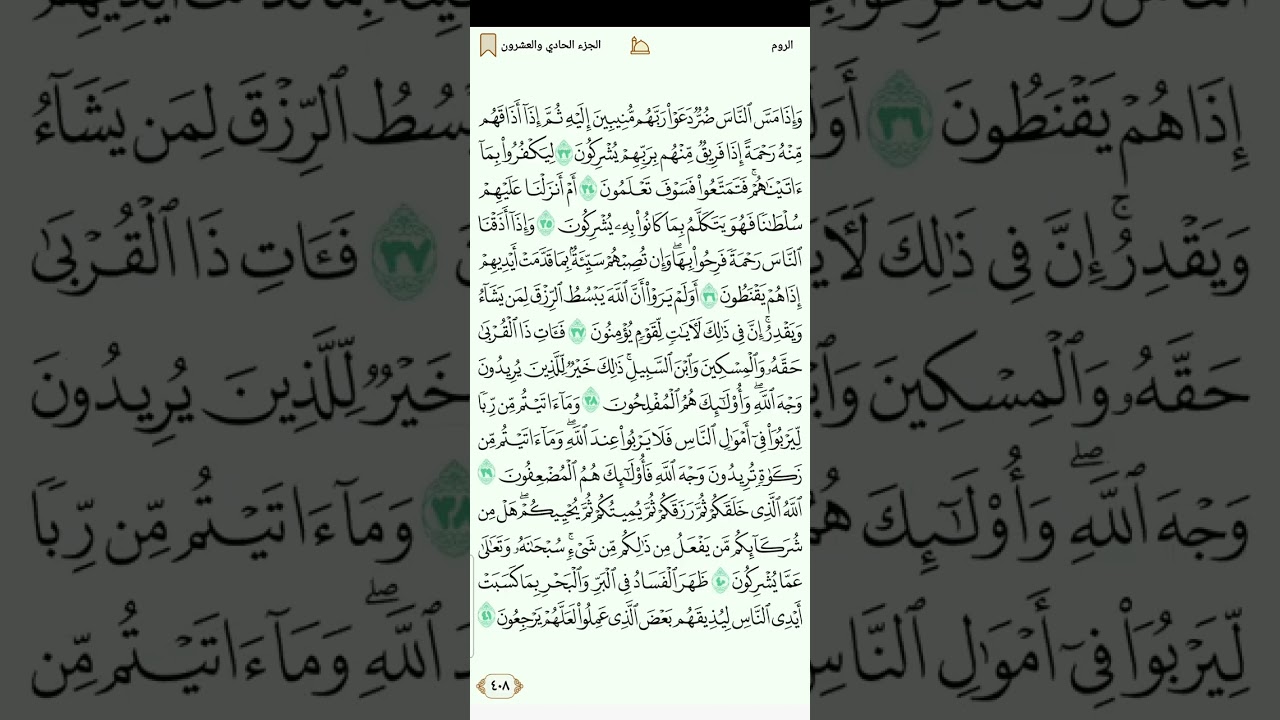 الروم
الجزء الحادي والعشرون
وَإِذَا مَسَّ ٱلنَّاسَ ضُرٌّ دَعَوْا۟ رَبَّهُم مُّنِيبِينَ إِلَيْهِ ثُمَّ إِذَآ أَذَاقَهُم
مِّنْهُ رَحْمَةً إِذَا فَرِيقٌ مِّنْهُم بِرَبِّهِمْ يُشْرِكُونَ ٣٣ لِيَكْفُرُوا۟ بِمَآ
ءَاتَيْنَٰهُمْ ۚ فَتَمَتَّعُوا۟ فَسَوْفَ تَعْلَمُونَ ٣٤ أَمْ أَنزَلْنَا عَلَيْهِمْ
سُلْطَٰنًا فَهُوَ يَتَكَلَّمُ بِمَا كَانُوا۟ بِهِۦ يُشْرِكُونَ ٣٥ وَإِذَآ أَذَقْنَا
ٱلنَّاسَ رَحْمَةً فَرِحُوا۟ بِهَا ۖ وَإِن تُصِبْهُمْ سَيِّئَةٌۢ بِمَا قَدَّمَتْ أَيْدِيهِمْ
إِذَا هُمْ يَقْنَطُونَ ٣٦ أَوَلَمْ يَرَوْا۟ أَنَّ ٱللَّهَ يَبْسُطُ ٱلرِّزْقَ لِمَن يَشَآءُ
وَيَقْدِرُ ۚ إِنَّ فِى ذَٰلِكَ لَءَايَٰتٍ لِّقَوْمٍ يُؤْمِنُونَ ٣٧ فَـَٔاتِ ذَا ٱلْقُرْبَىٰ
حَقَّهُۥ وَٱلْمِسْكِينَ وَٱبْنَ ٱلسَّبِيلِ ۚ ذَٰلِكَ خَيْرٌ لِّلَّذِينَ يُرِيدُونَ
وَجْهَ ٱللَّهِ ۖ وَأُو۟لَٰٓئِكَ هُمُ ٱلْمُفْلِحُونَ ٣٨ وَمَآ ءَاتَيْتُم مِّن رِّبًا
لِّيَرْبُوَا۟ فِىٓ أَمْوَٰلِ ٱلنَّاسِ فَلَا يَرْبُوا۟ عِندَ ٱللَّهِ ۖ وَمَآ ءَاتَيْتُم مِّن
زَكَوٰةٍ تُرِيدُونَ وَجْهَ ٱللَّهِ فَأُو۟لَٰٓئِكَ هُمُ ٱلْمُضْعِفُونَ ٣٩
ٱللَّهُ ٱلَّذِى خَلَقَكُمْ ثُمَّ رَزَقَكُمْ ثُمَّ يُمِيتُكُمْ ثُمَّ يُحْيِيكُمْ ۖ هَلْ مِن
شُرَكَآئِكُم مَّن يَفْعَلُ مِن ذَٰلِكُم مِّن شَىْءٍ ۚ سُبْحَٰنَهُۥ وَتَعَٰلَىٰ
عَمَّا يُشْرِكُونَ ٤٠ ظَهَرَ ٱلْفَسَادُ فِى ٱلْبَرِّ وَٱلْبَحْرِ بِمَا كَسَبَتْ
أَيْدِى ٱلنَّاسِ لِيُذِيقَهُم بَعْضَ ٱلَّذِى عَمِلُوا۟ لَعَلَّهُمْ يَرْجِعُونَ ٤١
٤٠٨